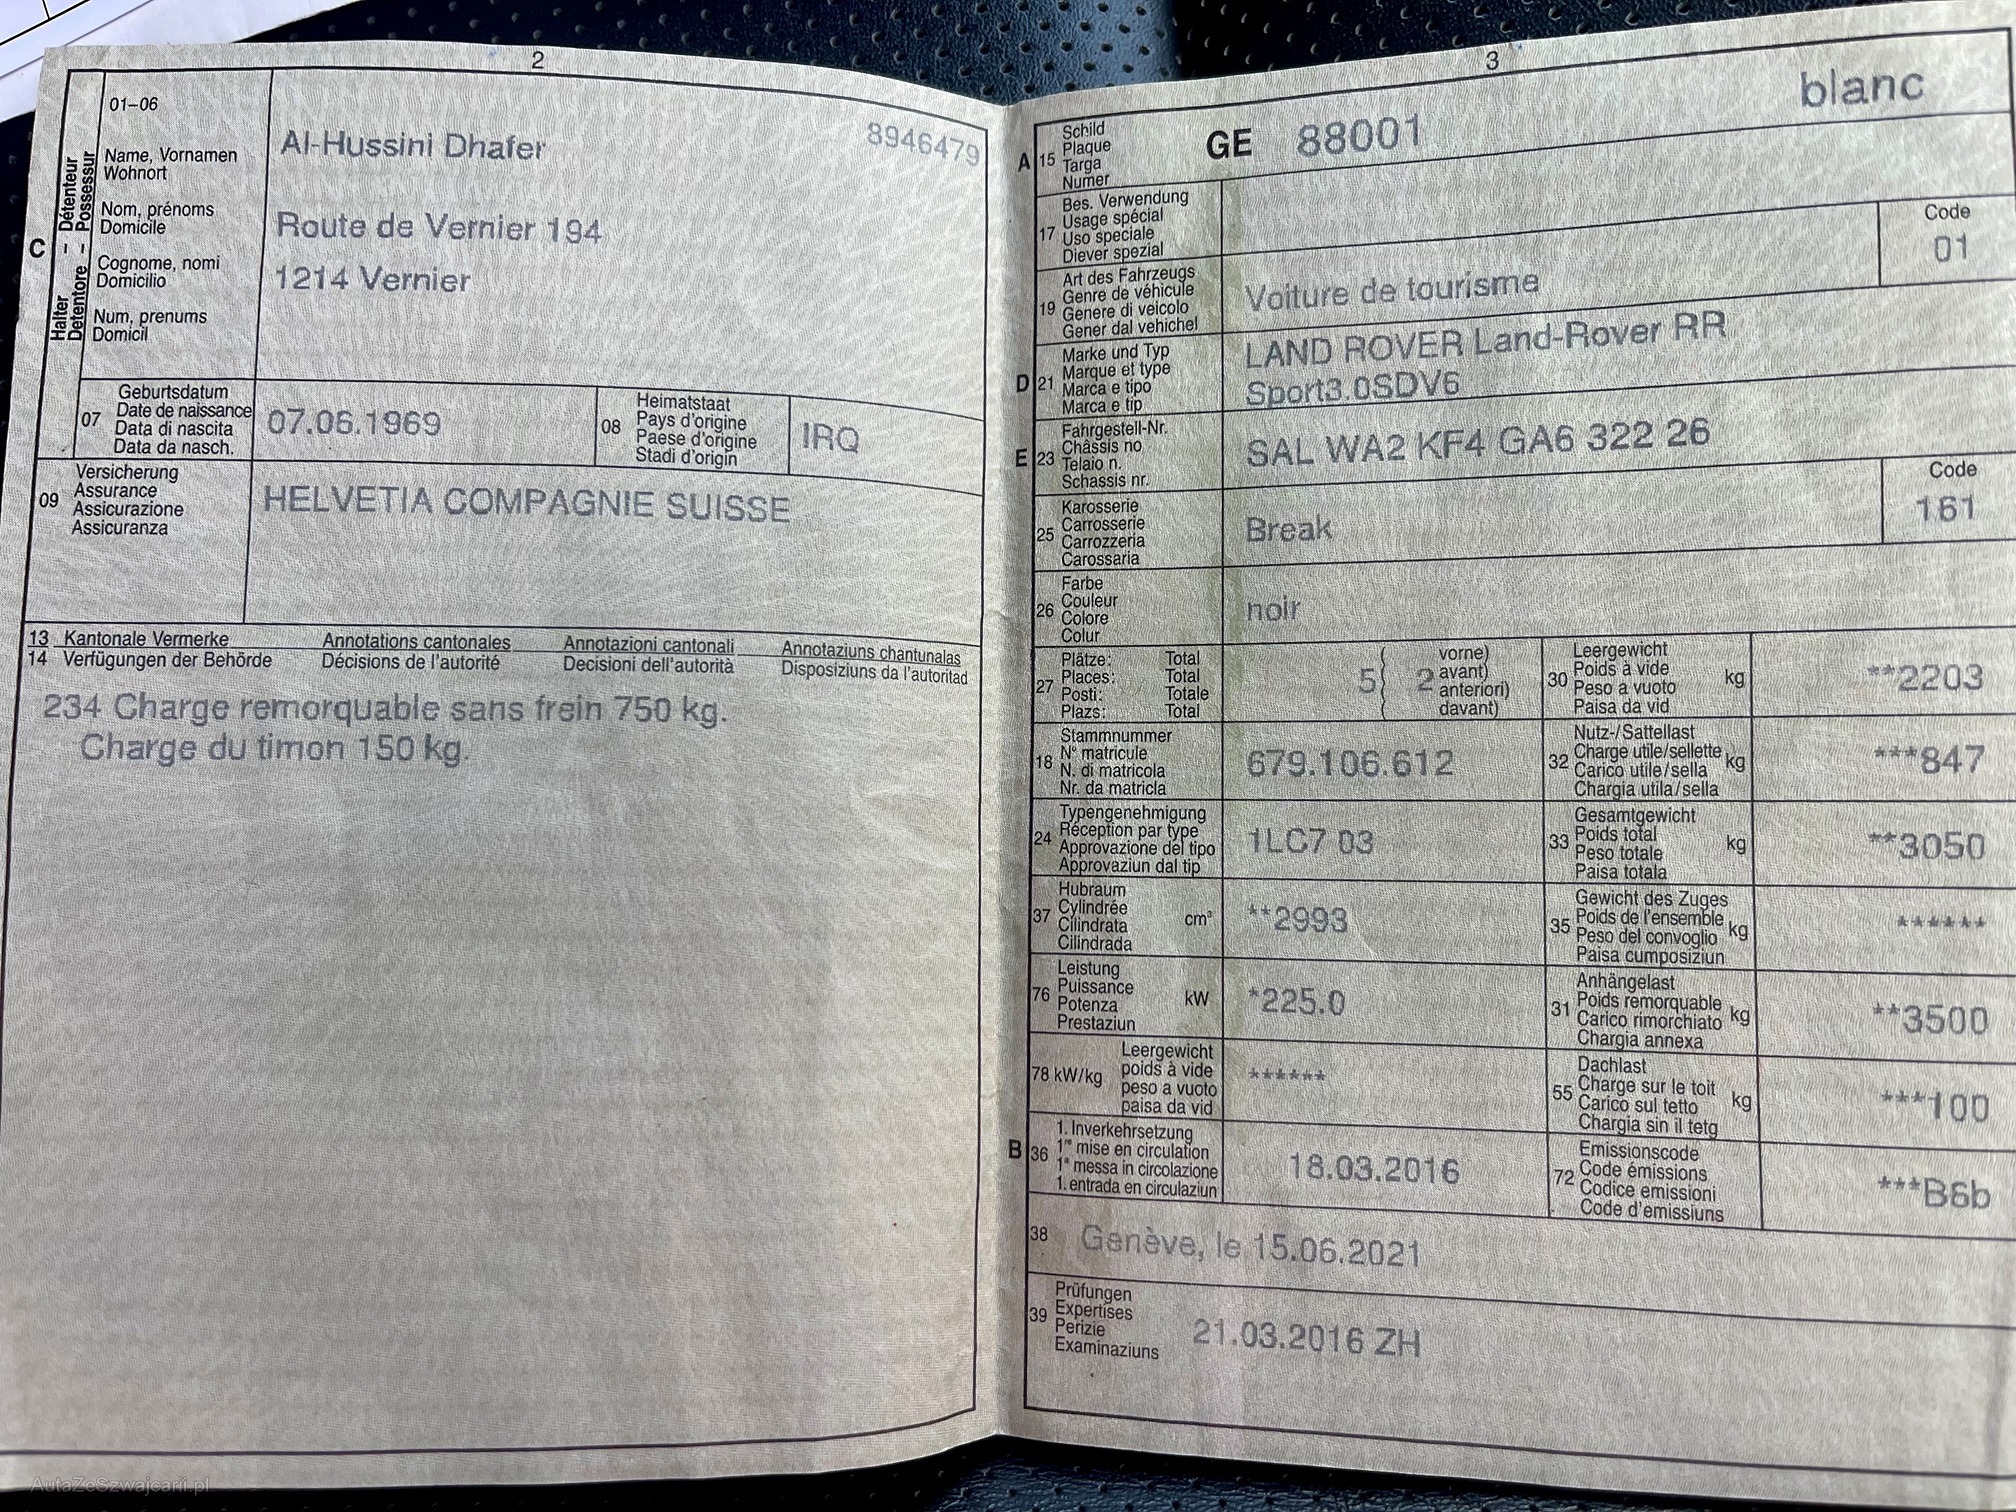 2
01–06
Name, Vornamen
Wohnort
Nom, prénoms
Domicile
Cognome, nomi
Domicilio
Num, prenums
Domicil
C
Halter – Détenteur
Detentore – Possessur
Al-Hussini Dhafer
8946479
Route de Vernier 194
1214 Vernier
07
Geburtsdatum
Date de naissance
Data di nascita
Data da nasch.
07.06.1969
08
Heimatstaat
Pays d'origine
Paese d'origine
Stadi d'origin
IRQ
09
Versicherung
Assurance
Assicurazione
Assicuranza
HELVETIA COMPAGNIE SUISSE
13 Kantonale Vermerke Annotations cantonales Annotazioni cantonali Annotaziuns chantunalas
14 Verfügungen der Behörde Décisions de l'autorité Decisioni dell'autorità Disposiziuns da l'autoritad
234 Charge remorquable sans frein 750 kg.
Charge du timon 150 kg.
3
blanc
A 15
Schild
Plaque
Targa
Numer
GE 88001
17
Bes. Verwendung
Usage spécial
Uso speciale
Diever spezial
Code
01
19
Art des Fahrzeugs
Genre de véhicule
Genere di veicolo
Gener dal vehichel
Voiture de tourisme
D 21
Marke und Typ
Marque et type
Marca e tipo
Marca e tip
LAND ROVER Land-Rover RR
Sport3.0SDV6
E 23
Fahrgestell-Nr.
Châssis no
Telaio n.
Schassis nr.
SAL WA2 KF4 GA6 322 26
25
Karosserie
Carrosserie
Carrozzeria
Carossaria
Break
Code
161
26
Farbe
Couleur
Colore
Colur
noir
27
Plätze: Total
Places: Total
Posti: Totale
Plazs: Total
5
2
vorne)
avant)
anteriori)
davant)
30
Leergewicht
Poids à vide
Peso a vuoto
Paisa da vid
kg
**2203
18
Stammnummer
N° matricule
N. di matricola
Nr. da matricla
679.106.612
32
Nutz-/Sattellast
Charge utile/sellette
Carico utile/sella
Chargia utila/sella
kg
***847
24
Typengenehmigung
Réception par type
Approvazione del tipo
Approvaziun dal tip
1LC7 03
33
Gesamtgewicht
Poids total
Peso totale
Paisa totala
kg
**3050
37
Hubraum
Cylindrée
Cilindrata
Cilindrada
cm³
**2993
35
Gewicht des Zuges
Poids de l'ensemble
Peso del convoglio
Paisa cumposiziun
kg
******
76
Leistung
Puissance
Potenza
Prestaziun
kW
*225.0
31
Anhängelast
Poids remorquable
Carico rimorchiato
Chargia annexa
kg
**3500
78 kW/kg
Leergewicht
poids à vide
peso a vuoto
paisa da vid
******
55
Dachlast
Charge sur le toit
Carico sul tetto
Chargia sin il tetg
kg
***100
B 36
1. Inverkehrsetzung
1re mise en circulation
1a messa in circolazione
1. entrada en circulaziun
18.03.2016
72
Emissionscode
Code émissions
Codice emissioni
Code d'emissiuns
***B6b
38
Genève, le 15.06.2021
39
Prüfungen
Expertises
Perizie
Examinaziuns
21.03.2016 ZH
AutaZeSzwajcarii.pl